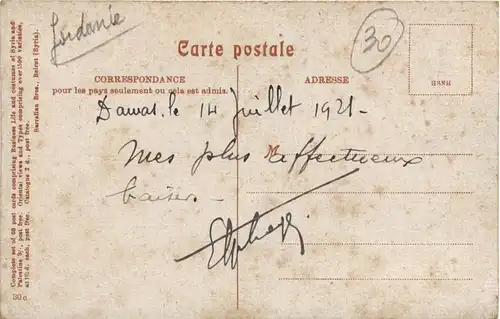 Jordanie
30
Carte postale
CORRESPONDANCE
pour les pays seulement ou cela est admis.
ADRESSE
Damas. le 14 Juillet 1921.
M
Mes plus affectueux
baisers
Complete set of 95 post cards comprising Business Life and costumes of Syria and
Palestine 9/. post free. Oriental views and Types comprising over 1500 varieties,
at 1½ d. each, post free. Catalogue 2 d. post free.
Sarrafian Bros., Beirut (Syria).
30 c